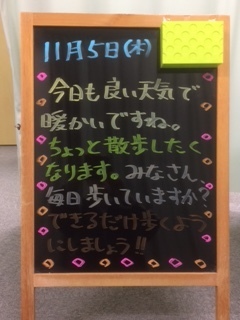 11月5日(木)
今日も良い天気で
暖かいですね。
ちょっと散歩したく
なります。みなさん、
毎日歩いていますか?
できるだけ歩くよう
にしましょう!!